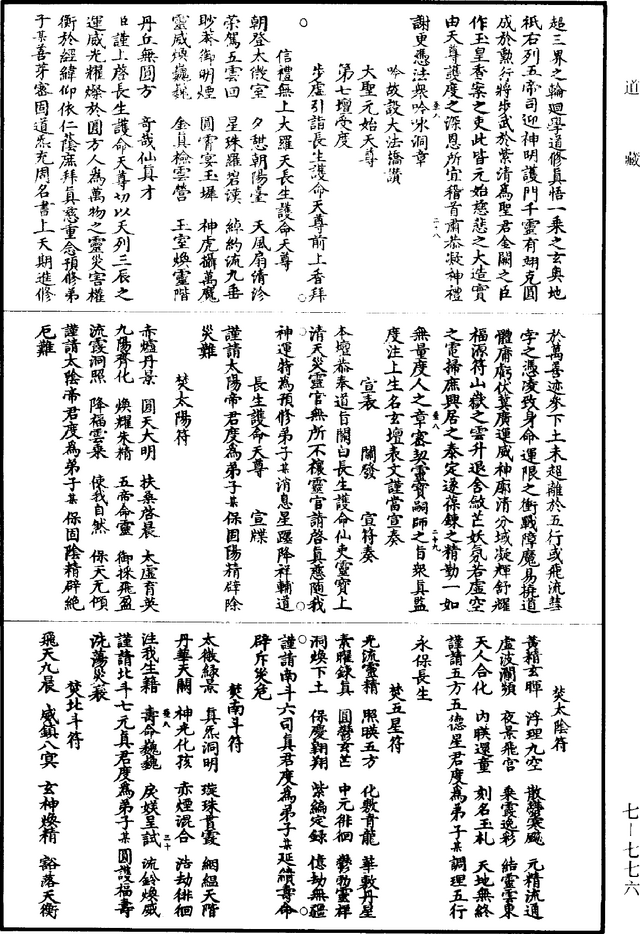 道藏
超三界之輪迴學道修真悟一乘之玄奥地
祇右列五帝司迎神明護門千靈有翊克圓
成於熏行將步武於紫清為聖君金闕之臣
作玉皇香案之吏此皆元始慈悲之大造實
由天尊護度之深恩所宜稽首肅恭凝神禮
謝更憑法衆吟咏洞章
吟故設大法橋讚
大聖元始天尊
第七壇受度
步虛引詣長生護命天尊前上香拜
信禮無上大羅天長生護命天尊
朝登太微室 夕憩朝陽臺 天風扇清泠
榮駕五雲回 星珠羅碧漢 綽約流九垂
眇莽御明煙 圓霄宴玉墀 神虎攝萬魔
靈威煥巍巍 金真檢雲營 玉室煥靈階
丹丘無圓方 奇哉仙真才
臣謹上啓長生護命天尊切以天列三辰之
運威光耀燦於圓方人為萬物之靈災害權
衡於經緯仰依仁蔭庶拜真慈重念預修弟
子某善芽密固道炁充周名書上天期進修
於萬善迹參下土未超離於五行或飛流彗
孛之憑凌致身命運限之衝戰障魔易撓道
體庸虧伏冀廣運威神廓清分域凝輝舒耀
福源符山嶽之雲升退舍斂芒妖氛若虛空
之電掃庶興居之泰定遂葆鍊之精勤一如
無量度人之章密契靈寶嗣師之旨衆真監
度注上生名玄壇表文謹當宣奏
宣表 關發 宣符奏
本壇恭奉道旨關白長生護命仙吏靈寶上
清天災靈官無所不禳靈官請啓真慈隨我
神運特為預修弟子某消息星躔降祥輔道
長生護命天尊 宣牒
謹請太陽帝君度為弟子某保固陽精辟除
災難
焚太陽符
赤爐丹景 圓天大明 扶桑啓晨 太虛育英
九陽齊化 煥耀朱精 五帝命靈 御採飛盈
流霞洞照 降福雲乘 使我自然 保天无傾
謹請太陰帝君度為弟子某保固陰精辟絕
厄難
焚太陰符
黃精玄暉 浮理九空 元精流通
虛波瀾頻 夜景飛宮 乘霞逸彩 結靈雲東
天人合化 內映還童 刻名玉札 天地無終
謹請五方五德星君度為弟子某調理五行
永保長生
焚五星符
元流靈精 照映五方 化敷青龍 華敷丹星
素曜錬真 圓罄玄芒 中元徘徊 鬱勃靈祥
洞煥下土 保慶翱翔 紫編定錄 億劫無疆
謹請南斗六司真君度為弟子某延續壽命
辟斥災危
焚南斗符
太微綠景 真炁洞明 璇珠貫霞 絪縕天階
丹華天關 神光化孩 赤煙混合 浩劫徘徊
注我生籍 壽命巍巍 戾媄呈試 流鈴煥威
謹請北斗七元真君度為弟子某圓護福壽
洗蕩災衰
焚北斗符
飛天九晨 威鎮八冥 玄神煥精 豁落天衡
七—七七六